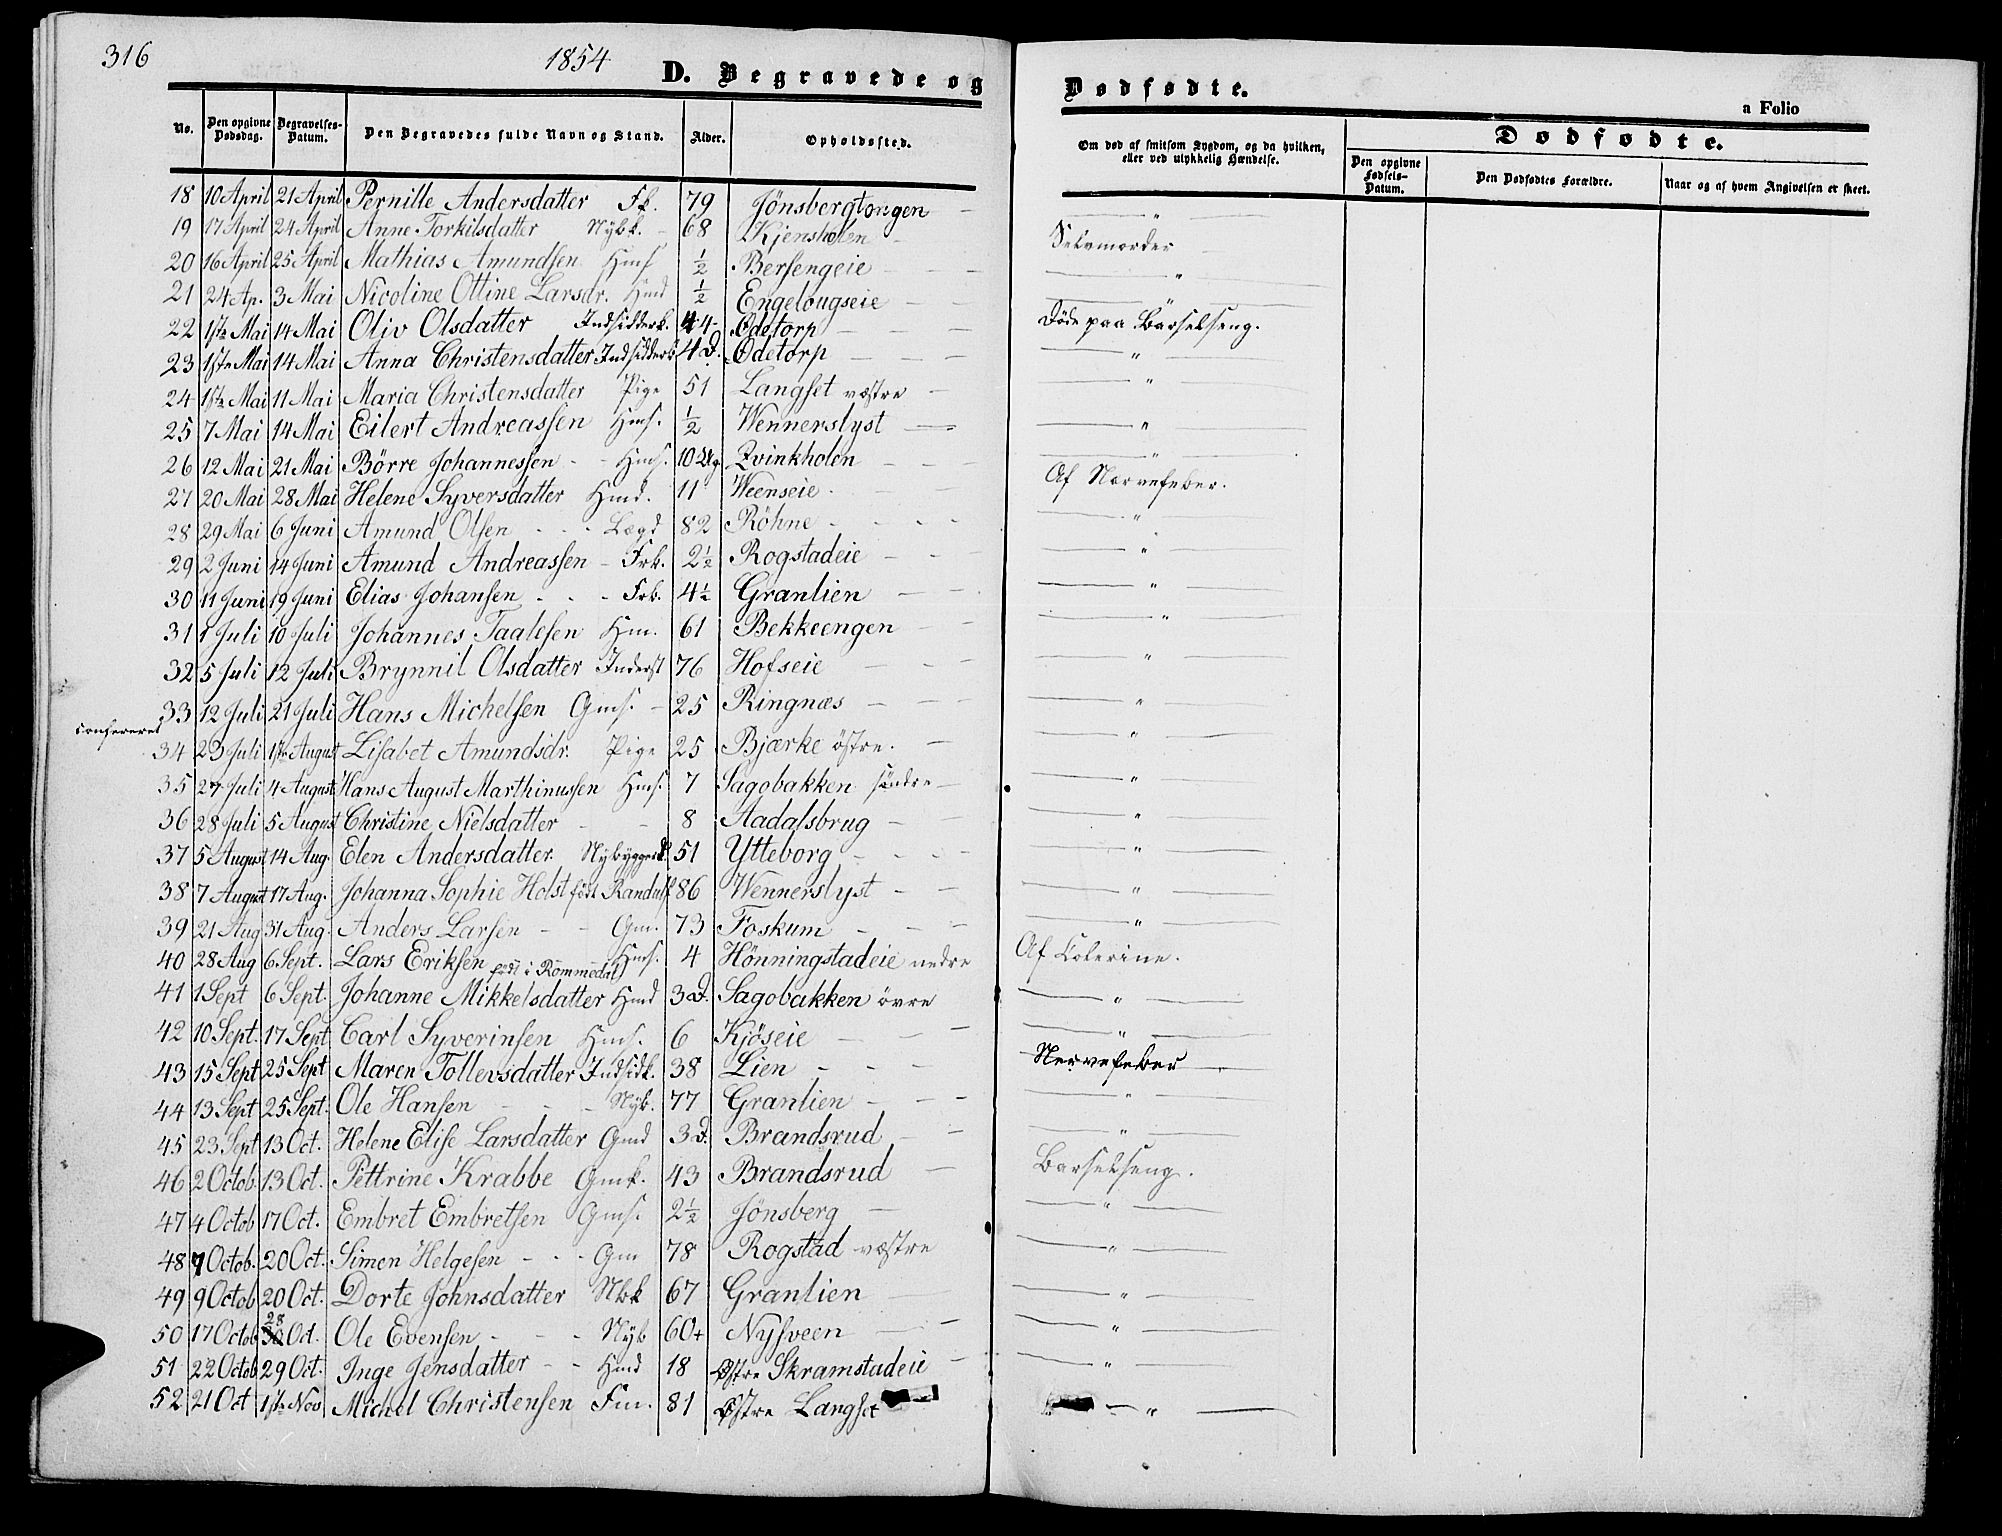 316
1854
D. Begravede og Dødfødte.
a Folio
No.
Den opgivne Dødsdag.
Begravelses-Datum.
Den Begravedes fulde Navn og Stand.
Alder.
Opholdssted.
Om død af smitsom Sygdom, og da hvilken, eller ved ulykkelig Hændelse.
Dødfødte.
Den opgivne Fødsels-Datum.
Den Dødfødtes Forældre.
Naar og af hvem Angivelsen er skeet.
18 10 April 21 April Pernille Andersdatter Fk. 79 Jønsbergtongen — " —
19 17 April 24 April Anne Torkilsdatter Nybk. 68 Kjensholen Selvmorder
20 16 April 25 April Mathias Amundsen Hms 1/2 Bersengeie — " —
21 24 Ap. 3 Mai Nicoline Ottine Larsdr. Hmd 1/2 Engelougseie —
22 1ste Mai 14 Mai Oliv Olsdatter Indsidderk. 44 Ødetorp Døde paa Barselseng.
23 1ste Mai 14 Mai Anna Christensdatter Indsidderb 4 D. Ødetorp — " —
24 1ste Mai 11 Mai Maria Christensdatter Pige 51 Langset væstre — " —
25 7 Mai 14 Mai Eilert Andreassen Hms. 1/2 Wennerslyst — " —
26 12 Mai 21 Mai Börre Johannessen Hms. 10 Ug Kvinkholen — " —
27 20 Mai 28 Mai Helene Syversdatter Hmd. 11 Weenseie Af Nervefeber.
28 29 Mai 6 Juni Amund Olsen Lægd 82 Röhne — " —
29 2 Juni 14 Juni Amund Andreassen Frk. 2 1/2 Rogstadeie — " —
30 11 Juni 19 Juni Elias Johansen Frb. 4 1/2 Granlien — " —
31 1 Juli 10 Juli Johannes Taalesen Hm. 61 Bekkeengen — " —
32 5 Juli 12 Juli Brynnil Olsdatter Inderst 76 Hofseie — " —
33 12 Juli 21 Juli Hans Michelsen Gms. 25 Ringnæs — " —
confereret
34 23 Juli 1ste August Lisabet Amundsdr. Pige 25 Bjærke östre. — " —
35 27 Juli 4 August Hans August Marthinussen Hms. 7 Sagobakken söndre — " —
36 28 Juli 5 August Christine Nielsdatter 8 Aadalsbrug — " —
37 5 August 14 Aug. Elen Andersdatter Nybyggerk. 51 Ytteborg — " —
38 7 August 17 Aug. Johanna Sophie Holst født Randulf 86 Wennerslyst — " —
39 21 Aug 31 Aug. Anders Larsen Gm. 73 Foskum — " —
40 28 Aug 6 Sept. Lars Eriksen Hms. 4 Hönningstadeie nedre Af Colerine.
født i Rommedal
41 1 Sept 6 Sept. Johanne Mikkelsdatter Hmd 3 D. Sagobakken övre — " —
42 10 Sept. 17 Sept Carl Syverinsen Hms. 6 Kjöseie — " —
43 15 Sept 25 Sept Maren Tollevsdatter Indsidk. 38 Lien Nervefeber
44 13 Sept 25 Sept. Ole Hansen Nyb. 77 Granlien — " —
45 23 Sept 13 Oct. Helene Elise Larsdatter Gmd 3 D. Brandsrud — " —
46 2 Octob. 13 Oct. Pettrine Krabbe Gmk. 43 Brandsrud Barselseng.
47 4 Octob 17 Oct. Embret Embretsen Gms. 2 1/2 Jönsberg — " —
48 7 Octob. 20 Oct. Simen Helgesen Gm 78 Rogstad væstre — " —
49 9 Octob 20 Oct. Dorte Johnsdatter Nbk 67 Granlien — " —
28
50 17 Octob 30 Oct. Ole Evensen Nyb 60+ Nysveen — " —
51 22 Octob 29 Oct. Inge Jensdatter Hmd 18 Østre Skramstadeie — " —
52 21 Oct 1ste Nov Michel Christensen Fm. 81 Østre Langset — " —